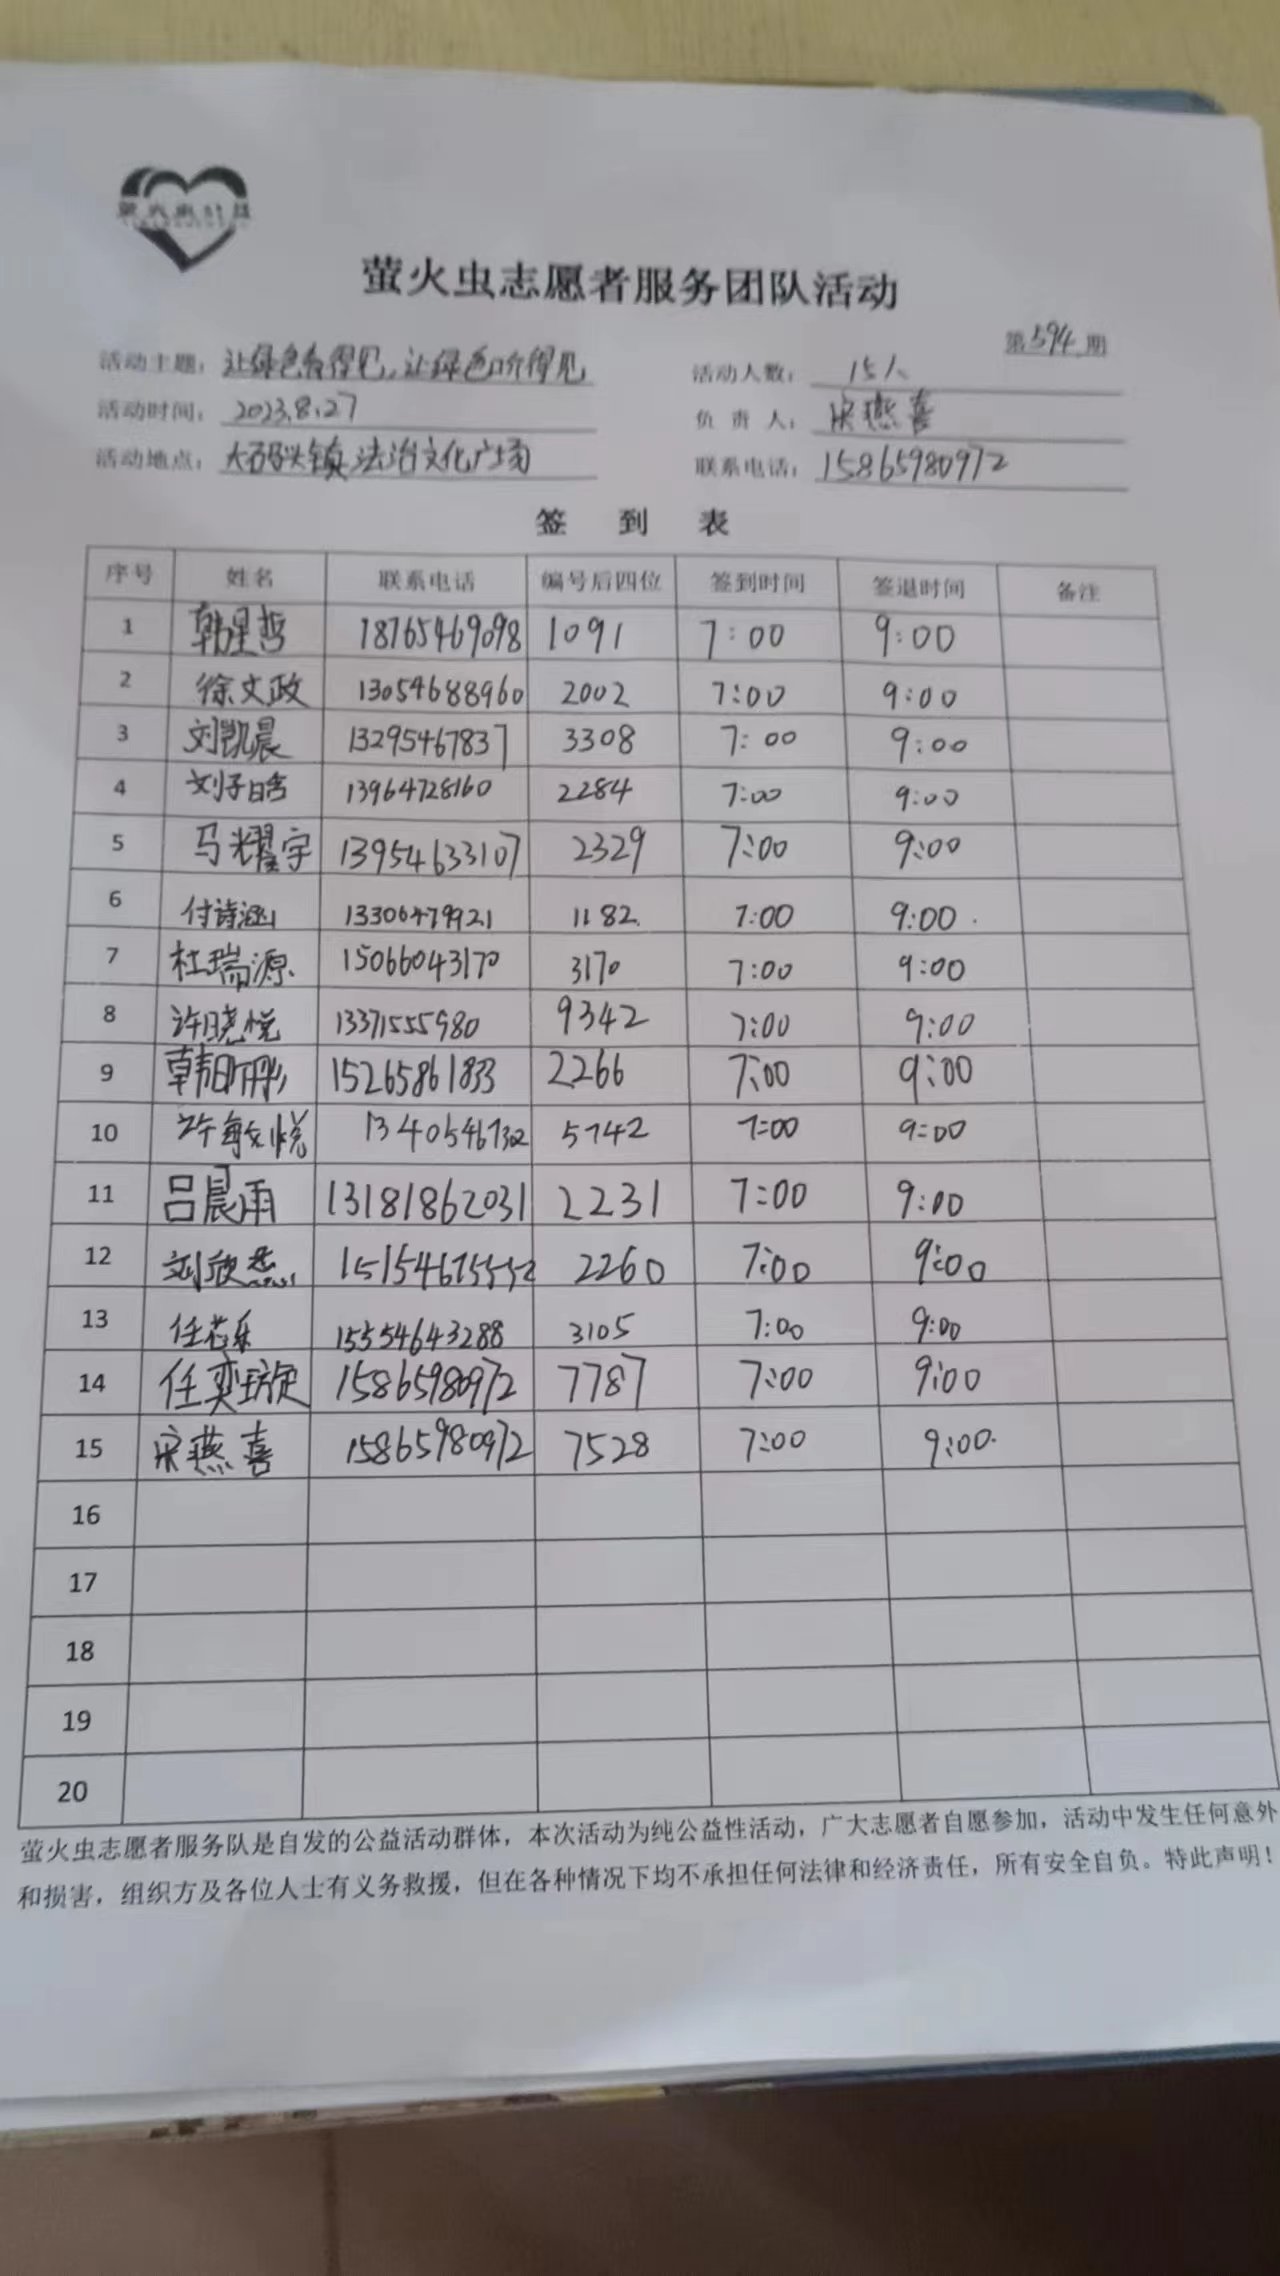 萤火虫志愿者服务团队活动
第594期
活动主题：让绿色看得见，让绿色听得见 活动人数：15人
活动时间：2023.8.27 负责人：宋燕喜
活动地点：大码头镇法治文化广场 联系电话：15865980972
签到表
序号 姓名 联系电话 编号后四位 签到时间 签退时间 备注
1 韩星哲 18765469098 1091 7:00 9:00
2 徐文政 13054688960 2002 7:00 9:00
3 刘凯晨 13295467837 3308 7:00 9:00
4 刘子晗 13964728160 2284 7:00 9:00
5 马耀宇 13954633107 2329 7:00 9:00
6 付诗涵 13306479921 1182 7:00 9:00
7 杜瑞源 15066043170 3170 7:00 9:00
8 许晓悦 13371555980 9342 7:00 9:00
9 韩明彤 15265861833 2266 7:00 9:00
10 许敏悦 13405467302 5742 7:00 9:00
11 吕晨雨 13181862031 2231 7:00 9:00
12 刘欣 15154675552 2260 7:00 9:00
13 任芯乐 15554643288 3105 7:00 9:00
14 任奕璇 15865980972 7787 7:00 9:00
15 宋燕喜 15865980972 7528 7:00 9:00
16
17
18
19
20
萤火虫志愿者服务队是自发的公益活动群体，本次活动为纯公益性活动，广大志愿者自愿参加，活动中发生任何意外
和损害，组织方及各位人士有义务救援，但在各种情况下均不承担任何法律和经济责任，所有安全自负。特此声明！